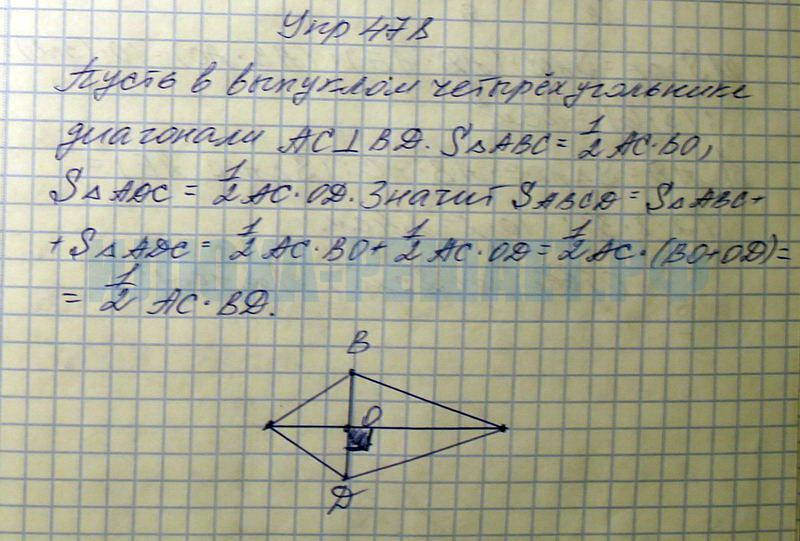 Упр 478
Пусть в выпуклом четырёхугольнике
диагонали AC⊥BD. S△ABC = 1/2 AC·BO,
S△ADC = 1/2 AC·OD. Значит SABCD = S△ABC+
+S△ADC = 1/2 AC·BO + 1/2 AC·OD = 1/2 AC·(BO+OD) =
= 1/2 AC·BD.
B
O
D